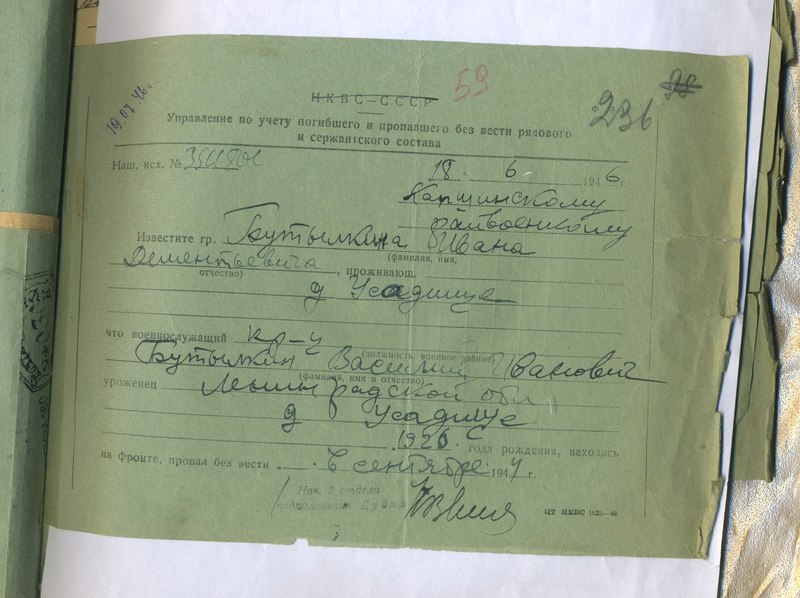 19.07.46г.
НКВС—СССР
59
236
Управление по учету погибшего и пропавшего без вести рядового
и сержантского состава
Наш. исх. №
18. 6 1946г.
Капшинскому
райвоенкому
Известите гр. Бутылкина Ивана
(фамилия, имя,
Дементьевича, проживающ.
отчество)
д Усадище
что военнослужащий кр-ц
(должность, военное звание)
Бутылкин Василий Иванович
(фамилия, имя и отчество)
уроженец Ленинградской обл
д Усадище
1920 года рождения, находясь
на фронте, пропал без вести в сентябре 194 г.
Нач. 3 отдела
подполковник
ЦТ НКВС